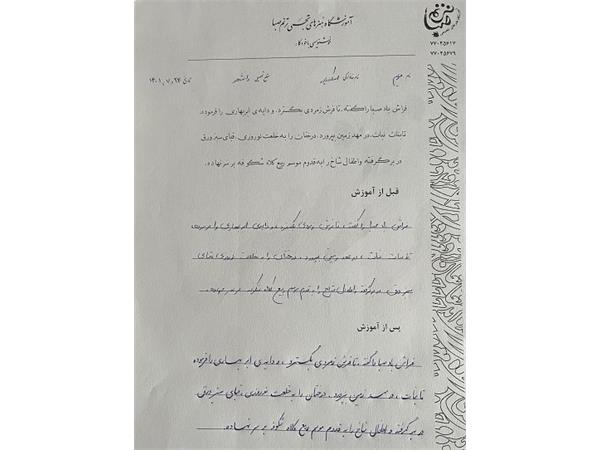 آموزشگاه هنرهای تجسمی ترنم صبا
خوشنویسی با خودکار
ترنم صبا
۷۷۰۲۵۶۱۲
۷۷۰۲۵۶۷۹
نام مریم نام خانوادگی تحصیل دانشجو تاریخ ۱۴۰۱٫۷٫۲۴
فراش باد صبا را گفته، تا فرش زمردی بگسترد، و دایه‌ی ابر بهاری را فرموده،
تا بنات نبات، در مهد زمین بپرورد، درختان را به خلعت نوروزی، قبای سبز ورق
در بر گرفته و اطفال شاخ را به قدوم موسم ربیع کلاه شکوفه بر سر نهاده.
قبل از آموزش
فراش باد صبا را گفته، تا فرش زمردی بگسترد، و دایه‌ی ابر بهاری را فرموده
تا بنات نبات، در مهد زمین بپرورد، درختان را به خلعت نوروزی، قبای
سبز ورق، در بر گرفته و اطفال شاخ را به قدوم موسم ربیع کلاه شکوفه بر سر نهاده.
پس از آموزش
فراش باد صبا را گفته، تا فرش زمردی بگسترد، و دایه‌ی ابر بهاری را فرموده
تا بنات، در مهد زمین بپرورد، درختان را به خلعت نوروزی، قبای سبز ورق
در بر گرفته و اطفال شاخ را به قدوم موسم ربیع کلاه شکوفه بر سر نهاده.